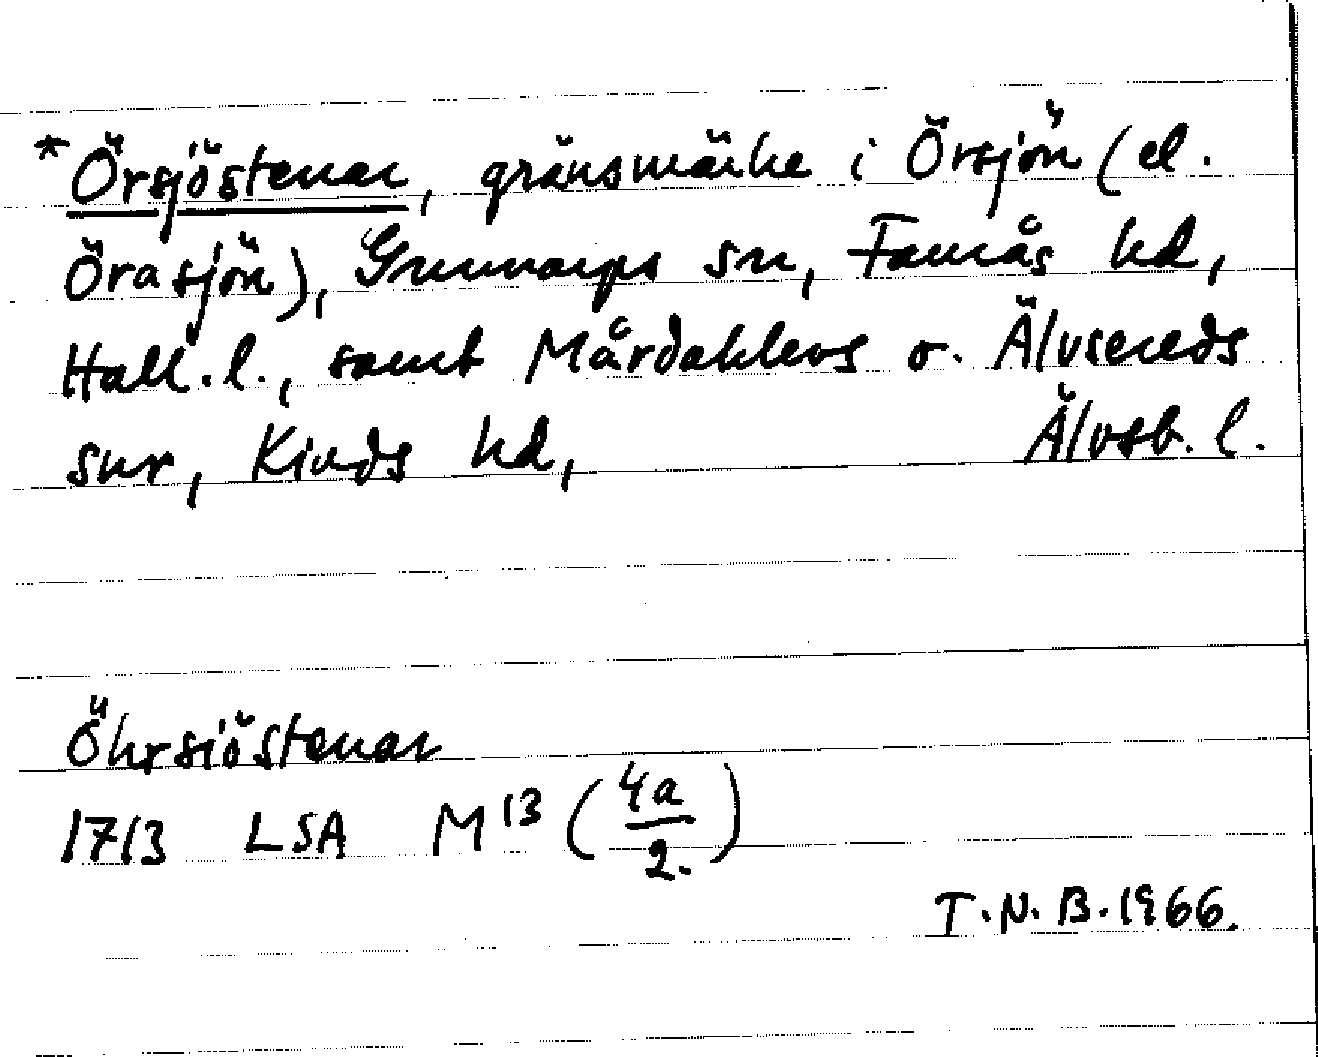 *Örsjöstenar, gränsmärke i Örsjön (el.
Örasjön), Gunnarps sn, Faurås hd,
Hall. l., samt Mårdaklevs o. Älvsereds
snr, Kinds hd, Älvsb. l.
Öhrsiöstenar
1713 LSA M¹³ (4a/2.)
T.N.B. 1966.